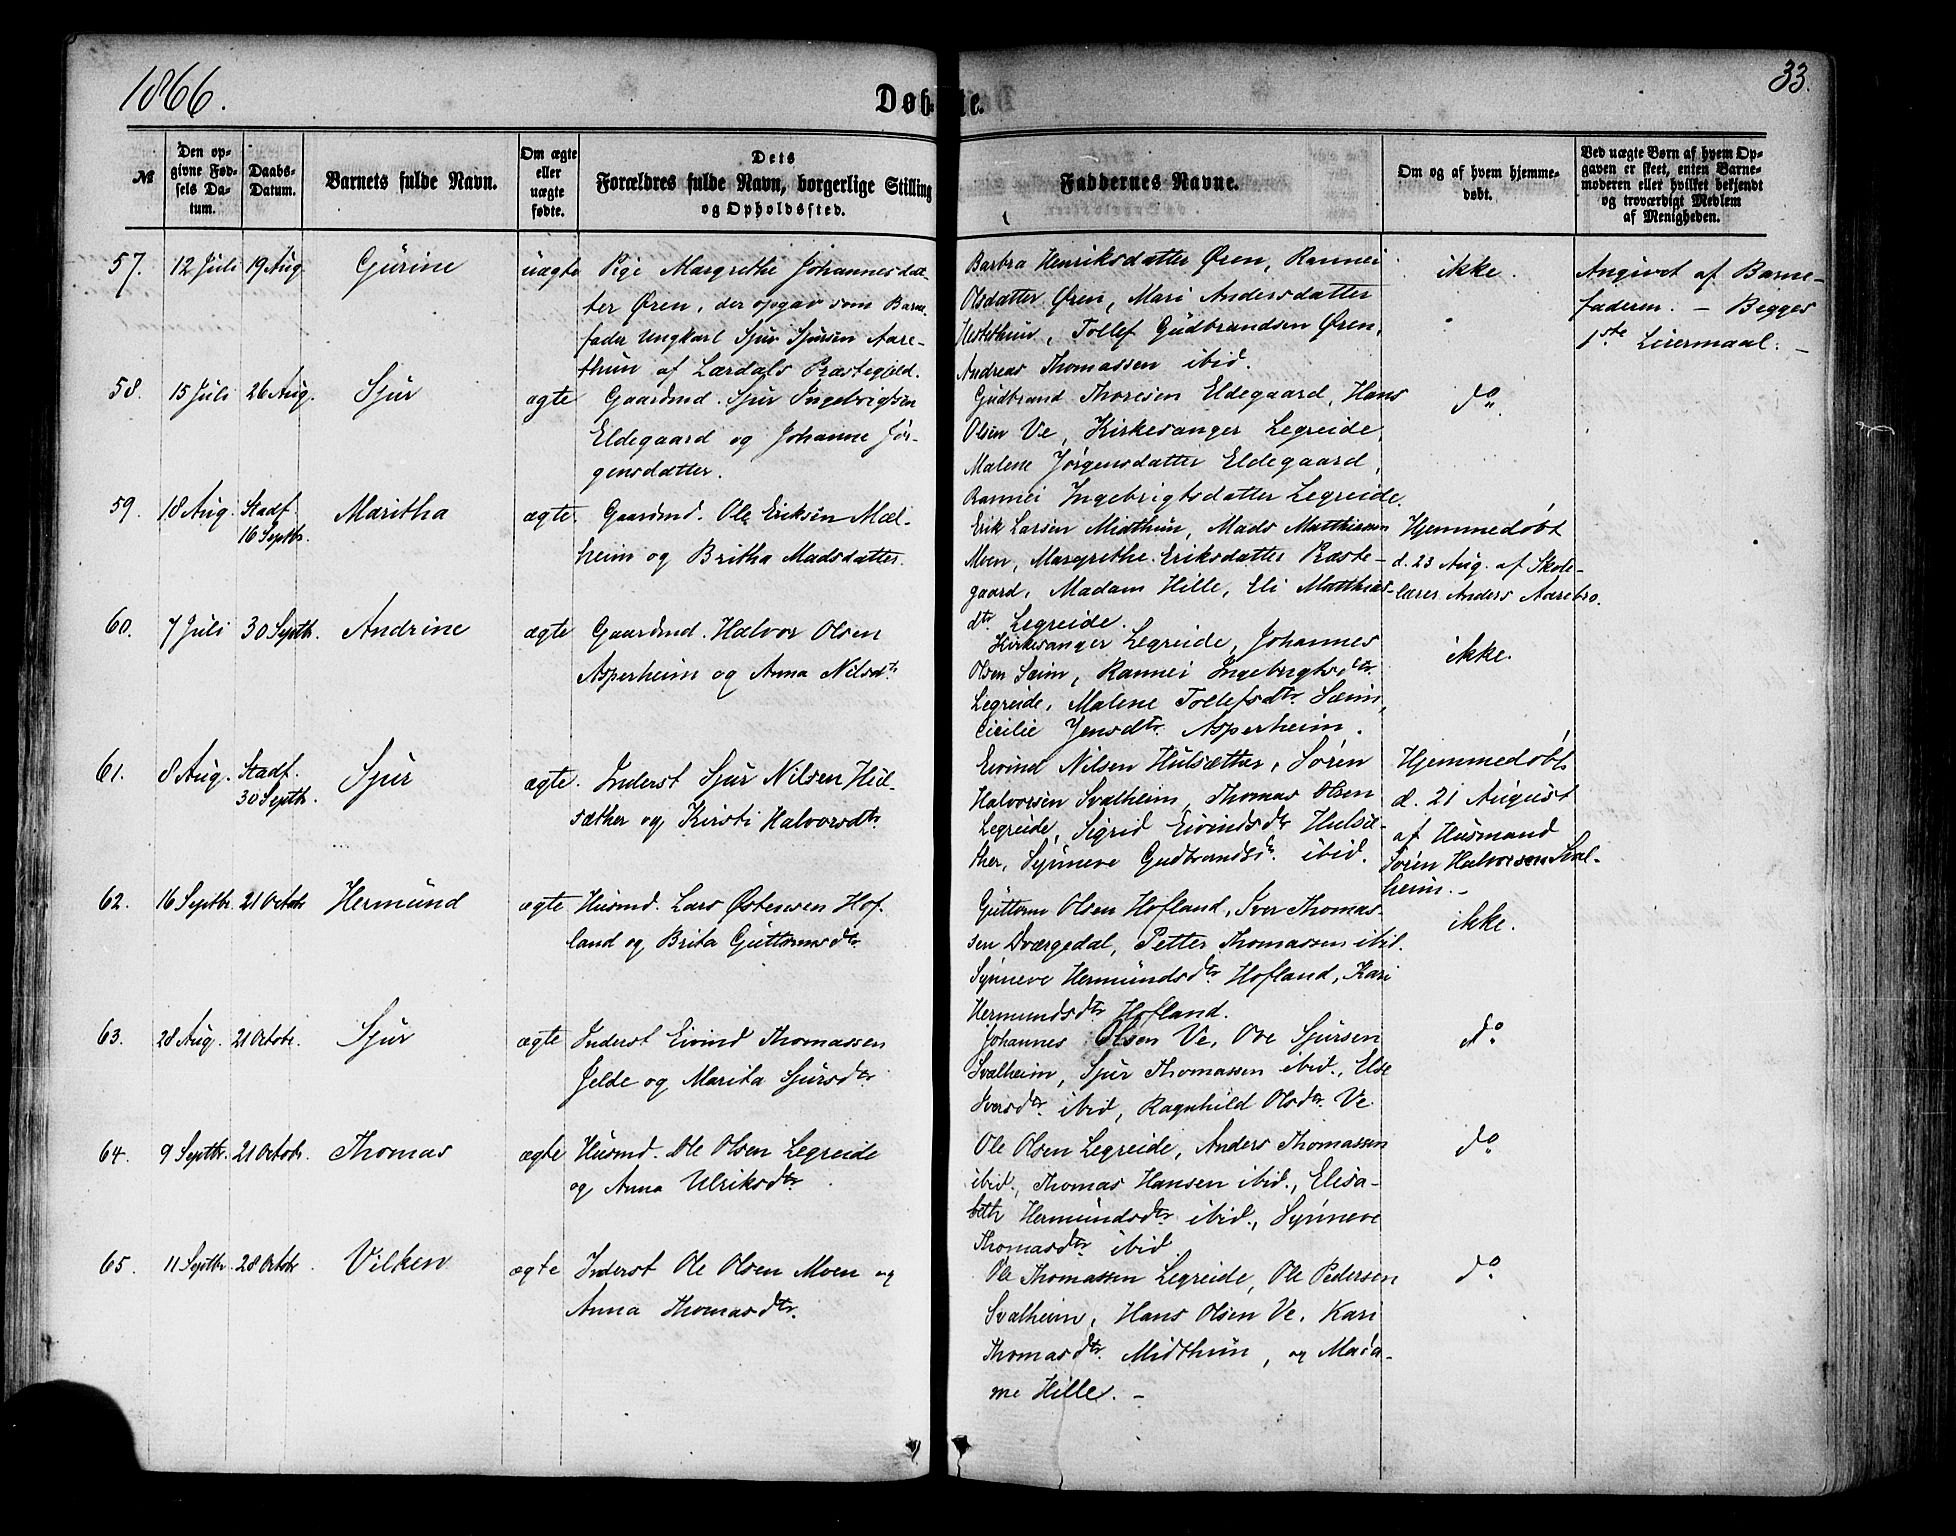 1866.
Døbte.
33.
№
Den opgivne Fødsels Datum.
Daabs-Datum.
Barnets fulde Navn.
Om ægte eller uægte fødte.
Dets Forældres fulde Navn, borgerlige Stilling og Opholdssted.
Faddernes Navne.
Om og af hvem hjemmedøbt.
Ved uægte Børn af hvem Opgaven er skeet, enten Barnemoderen eller hvilket bekjendt og troværdigt Medlem af Menigheden.
57. 12 Juli 19 Aug. Gurine uægte
Pige Margrethe Johannesdat-
ter Øren, der opgav som Barne-
fader Ungkarl Sjur Sjursen Aare-
thun af Lærdals Præstegjeld.
Barbra Henriksdatter Øren, Rannei
Olsdatter Øren, Mari Andersdatter
Hestethun, Tollef Gudbrandsen Øren,
Andreas Thomassen ibid.
ikke.
Angivet af Barne-
faderen. – Begges
1ste Leiermaal. –
58. 15 Juli 26 Aug. Sjur ægte
Gaardmd. Sjur Ingebrigtsen
Eldegaard og Johanne Jør-
gensdatter.
Gudbrand Thoresen Eldegaard, Hans
Olsen Ve, Kirkesanger Legreide,
Malene Jørgensdatter Eldegaard,
Rannei Ingebrigtsdatter Legreide.
do.
59. 18 Aug. Stadf. 16 Septbr. Maritha ægte.
Gaardmd. Ole Eriksen Mæl-
heim og Britha Madsdatter.
Erik Larsen Midthun, Mads Matthiassen
Moen, Margrethe Eriksdatter Præste-
gaard, Madam Hille, Eli Matthias-
dtr. Legreide.
Hjemmedøbt
d. 23 Aug. af Skole-
lærer Anders Aarebro.
60. 7 Juli 30 Septbr. Andrine ægte
Gaardmd. Halvor Olsen
Asperheim og Anna Nilsdtr.
Kirkesanger Legreide, Johannes
Olsen Sæim, Rannei Ingebrigtsdtr.
Legreide, Malene Tollefsdtr. Sæim,
Cicilie Jensdtr. Asperheim.
ikke.
61. 8 Aug. Stadf. 30 Septbr. Sjur ægte.
Inderst Sjur Nilsen Hul-
sæther og Kirsti Halvorsdtr.
Eivind Nilsen Hulsæther, Søren
Halvorsen Svalheim, Thomas Olsen
Legreide, Sigrid Eivindsdr Hulsæ-
ther, Synneve Gudbrandsdr. ibid.
Hjemmedøbt
d. 21 August
af Husmand
Søren Halvorsen Sval-
heim. –
62. 16 Septbr. 21 Octobr. Hermund ægte
Husmd. Lars Østensen Hof-
land og Brita Guttormsdtr.
Guttorm Olsen Hofland, Iver Thomas-
sen Dværgedal, Petter Thomassen ibid.
Synneve Hermundsdtr. Hofland, Kari
Hermundsdtr. Hofland.
ikke.
63. 28 Aug. 21 Octobr. Sjur ægte
Inderst Eivind Thomassen
Jelde og Marita Sjursdtr.
Johannes Olsen Ve, Ove Sjursen
Svalheim, Sjur Thomassen ibid., Else
Iversdtr. ibid, Ragnhild Olsdtr. Ve
do.
64. 9 Septbr. 21 Octobr. Thomas ægte
Husmd. Ole Olsen Legreide
og Anna Ulriksdtr.
Ole Olsen Legreide, Anders Thomassen
ibid., Thomas Hansen ibid., Elisa-
beth Hermundsdtr. ibid., Synneve
Thomasdtr. ibid
do.
65. 11 Septbr. 28 Octobr. Vilken ægte
Inderst Ole Olsen Moen og
Anna Thomasdtr.
Ole Thomassen Legreide, Ole Pedersen
Svalheim, Hans Olsen Ve, Kari
Thomasdtr. Midthun, og Mada-
me Hille. –
do.